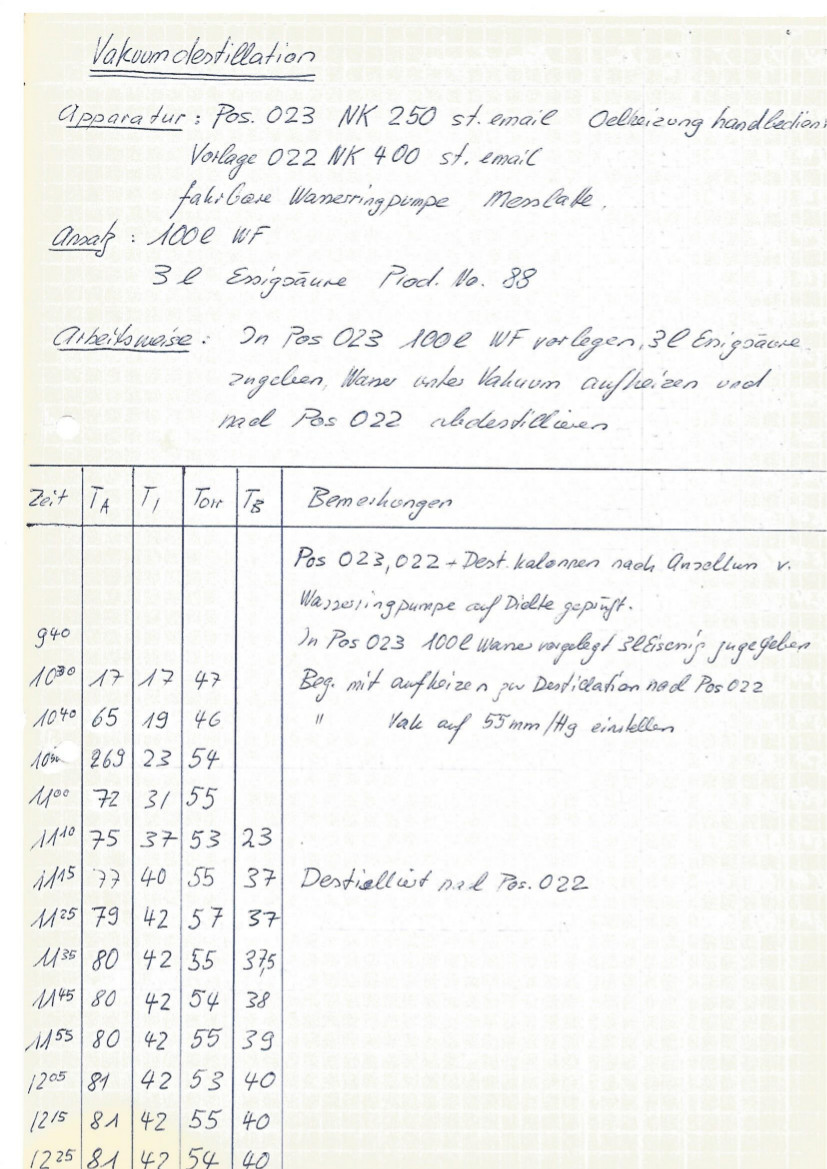 Vakuumdestillation
Apparatur: Pos. 023 NK 250 st. email Oelheizung handbedient
Vorlage 022 NK 400 st. email
fahrbare Wasserringpumpe Messlatte.
Ansatz: 100 l WF
3 l Essigsäure Prod. No. 88
Arbeitsweise: In Pos 023 100 l WF vorlegen, 3 l Essigsäure
zugeben, Wasser unter Vakuum aufheizen und
nach Pos 022 abdestillieren
Zeit TA TI Torr TB Bemerkungen
Pos 023, 022 + Dest. kolonnen nach v.
Wasserringpumpe auf Dichte geprüft.
9 40 In Pos 023 100 l Wasser vorgelegt 3 l zugegeben
10 30 17 17 47 Beg. mit aufheizen zur Destillation nach Pos 022
10 40 65 19 46 " Vak auf 55 mm/Hg einstellen
269 23 54
11 00 72 31 55
11 10 75 37 53 23
11 15 77 40 55 37 Destielliert nach Pos. 022
11 25 79 42 57 37
11 35 80 42 55 37,5
11 45 80 42 54 38
11 55 80 42 55 39
12 05 81 42 53 40
12 15 81 42 55 40
12 25 81 42 54 40